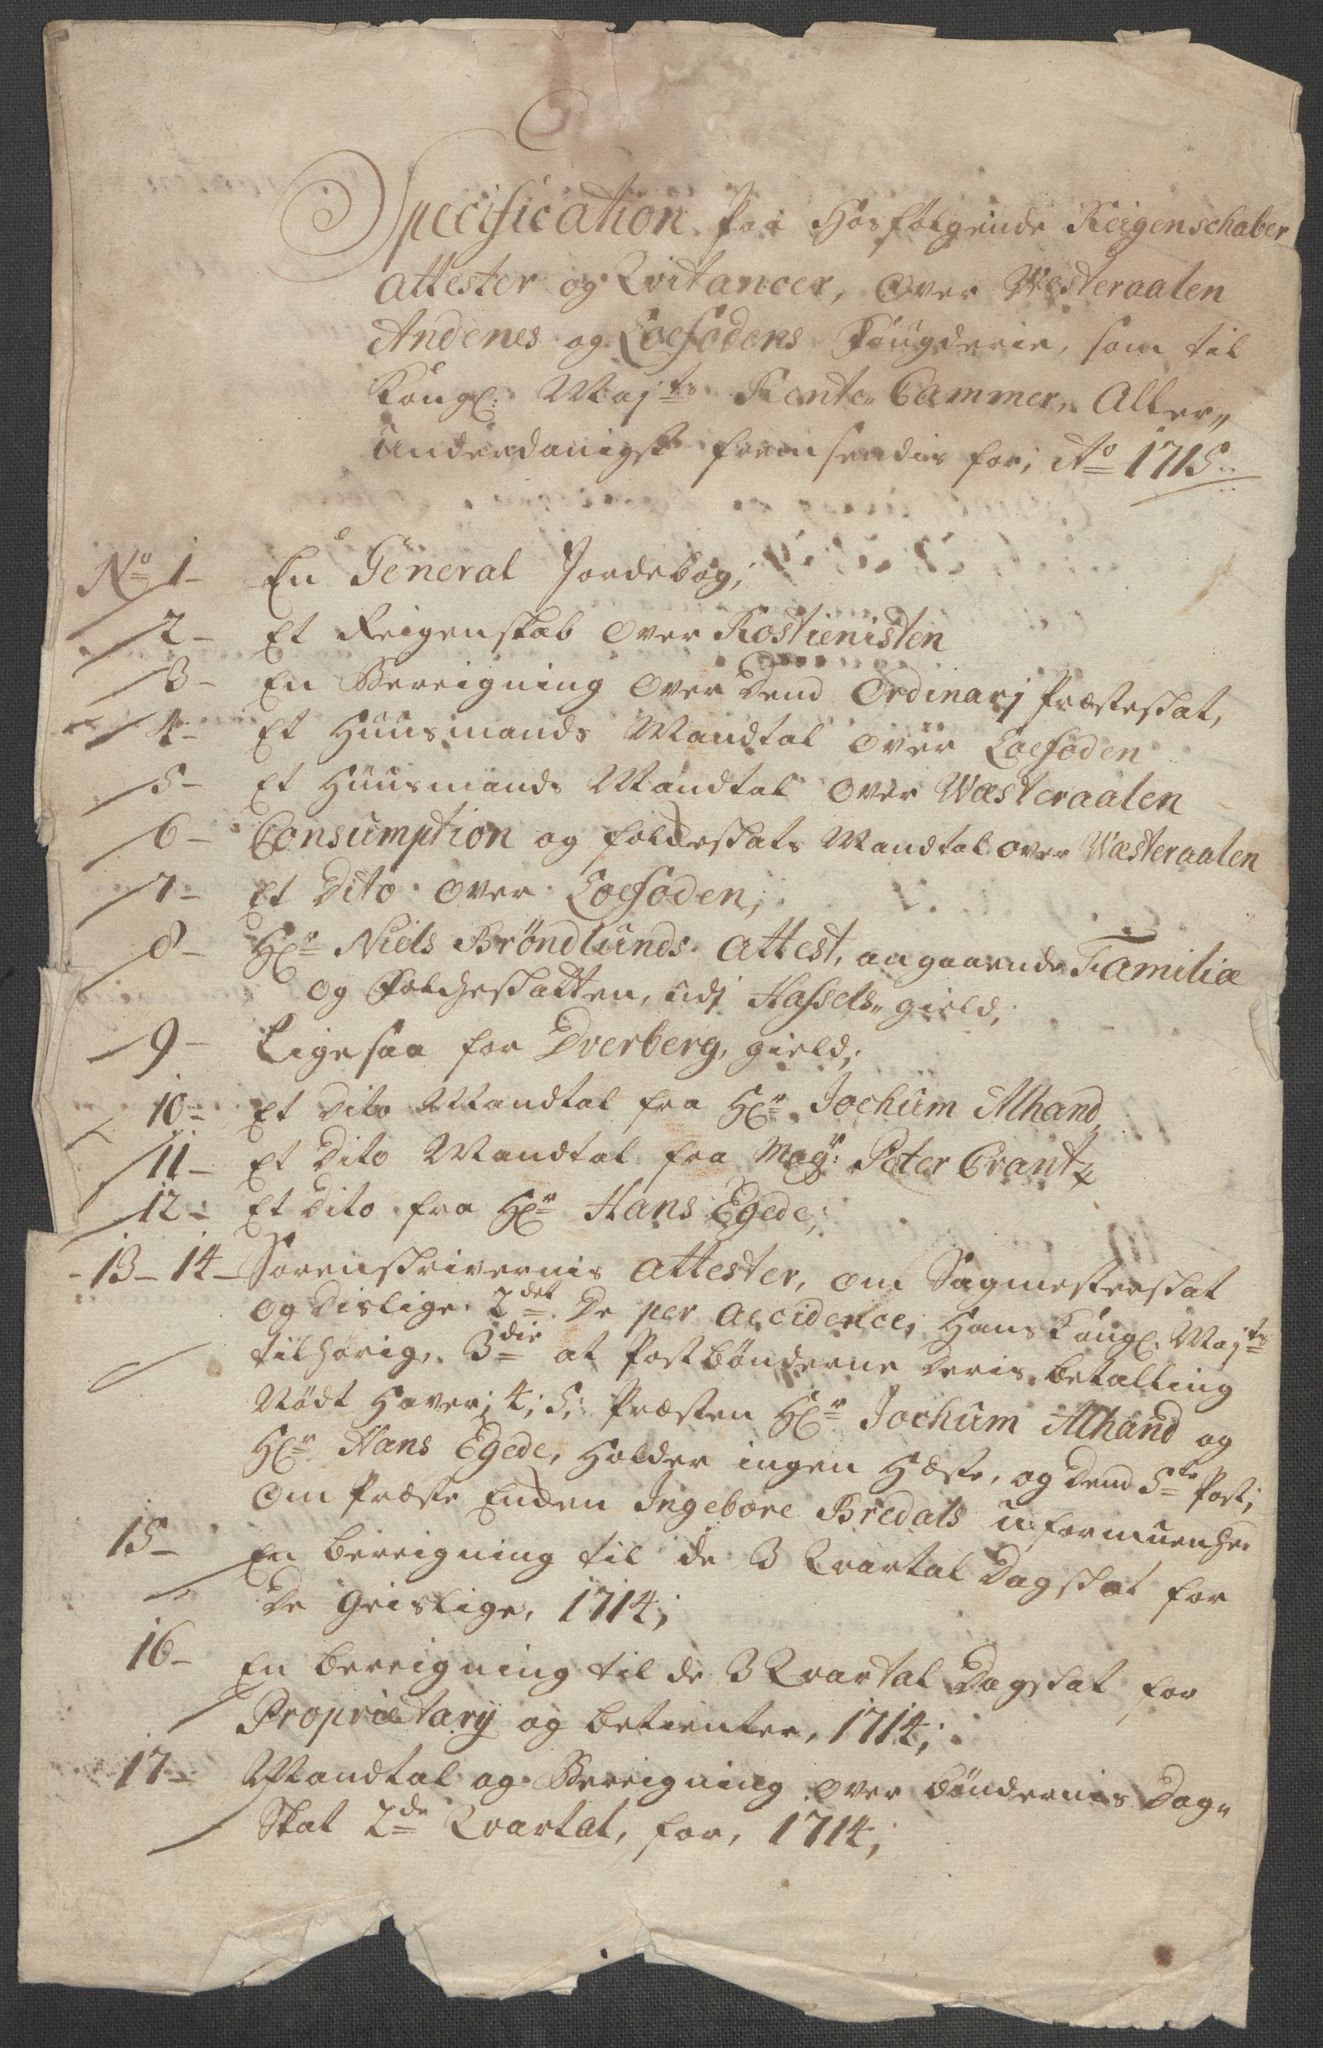 Specification Paa Hosfølgende Reigenschaber
Attester og Qvitancer, Over Westeraalen
Andenes og Loefodens Fougderie, som til
Kongl: Majts Rente Cammer, Aller„
underdanigst fremsendis for; Ao 1715
No 1 - En General Jordebog;
2 - Et Reigenskab Over Rostienisten
3 - En Bereigning Over Dend Ordinarj Præsteskat,
4 - Et Huusmands Mandtal over Loefoden
5 - Et Huusmands Mandtal Over Wæsteraalen
6 - Consumption og folckeskats Mandtal over Wæsteraalen
7 - Et Dito Over Loefoden;
8 - Hr Niels Bröndlunds Attest, angaaende Familiæ
og Folcheskatten, udj Hassels„ gield;
9 - Ligesaa for Dverberg, gield;
10 - Et Dito Mandtal fra Hr Jochum Alhand,
11 - Et Dito Mandtal fra Magr: Peter Crantz
12 - Et Dito fra Hr Hans Egede;
- 13 - 14 - Sorenskrivernis Attester, om Sagmesterskat
og Dislige 2det De per Accidence, Hans Kongl. Majts
tilhørig, 3die at Postbönderne Deris betalling
Nödt Haver; 4; 5; Præsten Hr Jochum Alhand og
Hr Hans Egede, Holder ingen Hæste, og Dend 5te Post;
Om Præste Encken Ingebore Bredals uformuenhed
15 - En bereigning til de 3 Qvartal Dagskat for
De Geistlige, 1714;
16 - En bereigning til de 3 Qvartal Dagskat for
Proprietarij og betienter, 1714;
17 - Mandtal og Bereigning over böndernis Dag„
Skat 2de Qvartal, for, 1714;